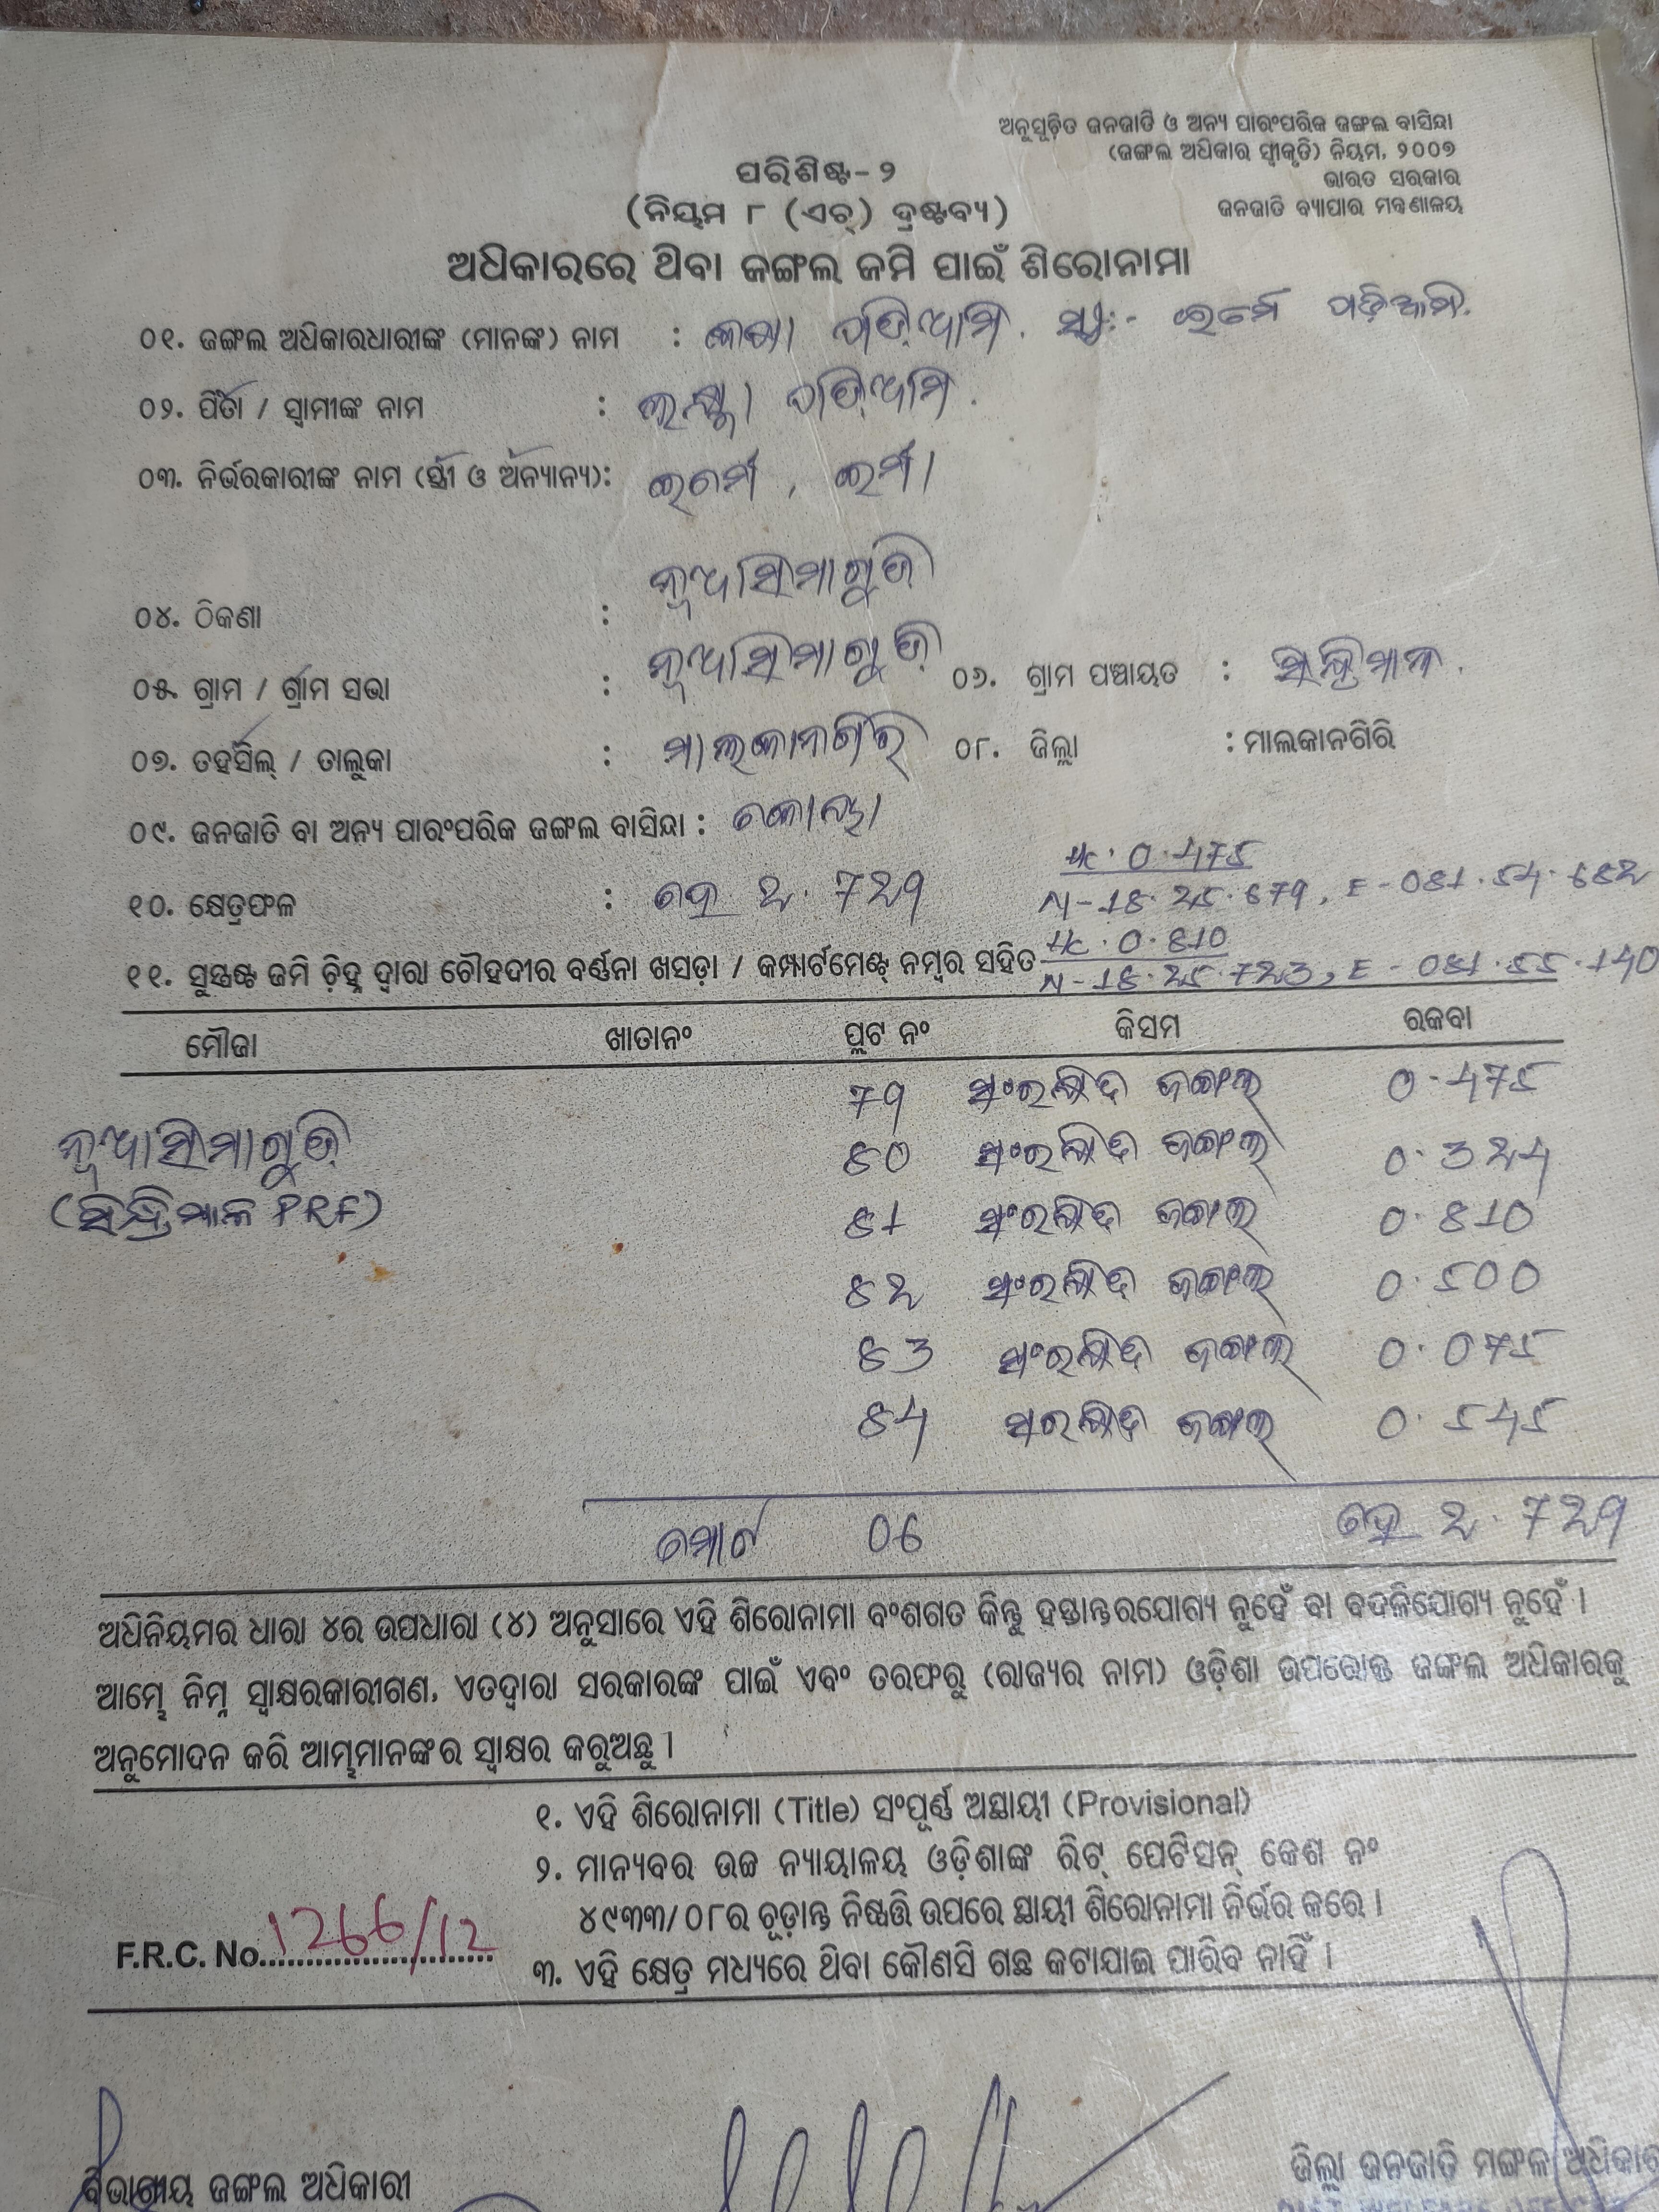 ଅନୁସୂଚିତ ଜନଜାତି ଓ ଅନ୍ୟ ପାରଂପରିକ ଜଙ୍ଗଲ ବାସିନ୍ଦା
(ଜଙ୍ଗଲ ଅଧିକାର ସ୍ୱୀକୃତି) ନିୟମ, ୨୦୦୭
ଭାରତ ସରକାର
ଜନଜାତି ବ୍ୟାପାର ମନ୍ତ୍ରଣାଳୟ
ପରିଶିଷ୍ଟ-୨
(ନିୟମ ୮ (ଏଚ୍) ଦ୍ରଷ୍ଟବ୍ୟ)
ଅଧିକାରରେ ଥିବା ଜଙ୍ଗଲ ଜମି ପାଇଁ ଶିରୋନାମା
୦୧. ଜଙ୍ଗଲ ଅଧିକାରଧାରୀଙ୍କ (ମାନଙ୍କ) ନାମ : ପଡ଼ିଆମି
୦୨. ପିତା / ସ୍ୱାମୀଙ୍କ ନାମ : ପଡ଼ିଆମି
୦୩. ନିର୍ଭରକାରୀଙ୍କ ନାମ (ସ୍ତ୍ରୀ ଓ ଅନ୍ୟାନ୍ୟ):
୦୪. ଠିକଣା : ନୂଆସିମାଗୁଡ଼ି
୦୫. ଗ୍ରାମ / ଗ୍ରାମ ସଭା : ନୂଆସିମାଗୁଡ଼ି ୦୬. ଗ୍ରାମ ପଞ୍ଚାୟତ : ସିନ୍ଧ୍ରିମାଳ
୦୭. ତହସିଲ୍ / ତାଲୁକା : ମାଲକାନଗିରି ୦୮. ଜିଲ୍ଲା : ମାଲକାନଗିରି
୦୯. ଜନଜାତି ବା ଅନ୍ୟ ପାରଂପରିକ ଜଙ୍ଗଲ ବାସିନ୍ଦା : କୋୟା
Hc. 0.475
୧୦. କ୍ଷେତ୍ରଫଳ : ହେ 2.729 N-18.25.679, E-081.54.682
Hc. 0.810
୧୧. ସୁସ୍ପଷ୍ଟ ଜମି ଚିହ୍ନ ଦ୍ୱାରା ଚୌହଦୀର ବର୍ଣ୍ଣନା ଖସଡ଼ା / କମ୍ପାର୍ଟମେଣ୍ଟ୍ ନମ୍ବର ସହିତ N-18.25.723, E-081.55.140
ମୌଜା ଖାତାନଂ ପ୍ଲଟ ନଂ କିସମ ରକବା
79 ସଂରକ୍ଷିତ ଜଙ୍ଗଲ 0.475
ନୂଆସିମାଗୁଡ଼ି 80 ସଂରକ୍ଷିତ ଜଙ୍ଗଲ 0.324
(ସିନ୍ଧ୍ରିମାଳ PRF) 81 ସଂରକ୍ଷିତ ଜଙ୍ଗଲ 0.810
82 ସଂରକ୍ଷିତ ଜଙ୍ଗଲ 0.500
83 ସଂରକ୍ଷିତ ଜଙ୍ଗଲ 0.075
84 ସଂରକ୍ଷିତ ଜଙ୍ଗଲ 0.545
ମୋଟ 06 ହେ 2.729
ଅଧିନିୟମର ଧାରା ୪ର ଉପଧାରା (୪) ଅନୁସାରେ ଏହି ଶିରୋନାମା ବଂଶଗତ କିନ୍ତୁ ହସ୍ତାନ୍ତରଯୋଗ୍ୟ ନୁହେଁ ବା ବଦଳିଯୋଗ୍ୟ ନୁହେଁ ।
ଆମ୍ଭେ ନିମ୍ନ ସ୍ୱାକ୍ଷରକାରୀଗଣ, ଏତଦ୍ୱାରା ସରକାରଙ୍କ ପାଇଁ ଏବଂ ତରଫରୁ (ରାଜ୍ୟର ନାମ) ଓଡ଼ିଶା ଉପରୋକ୍ତ ଜଙ୍ଗଲ ଅଧିକାରକୁ
ଅନୁମୋଦନ କରି ଆମ୍ଭମାନଙ୍କର ସ୍ୱାକ୍ଷର କରୁଅଛୁ ।
୧. ଏହି ଶିରୋନାମା (Title) ସଂପୂର୍ଣ୍ଣ ଅସ୍ଥାୟୀ (Provisional)
୨. ମାନ୍ୟବର ଉଚ୍ଚ ନ୍ୟାୟାଳୟ ଓଡ଼ିଶାଙ୍କ ରିଟ୍ ପେଟିସନ୍ କେଶ ନଂ
୪୯୩୩/୦୮ର ଚୂଡ଼ାନ୍ତ ନିଷ୍ପତ୍ତି ଉପରେ ସ୍ଥାୟୀ ଶିରୋନାମା ନିର୍ଭର କରେ ।
F.R.C. No. 1266/12
୩. ଏହି କ୍ଷେତ୍ର ମଧ୍ୟରେ ଥିବା କୌଣସି ଗଛ କଟାଯାଇ ପାରିବ ନାହିଁ ।
ବିଭାଗୀୟ ଜଙ୍ଗଲ ଅଧିକାରୀ ଜିଲ୍ଲା ଜନଜାତି ମଙ୍ଗଳ